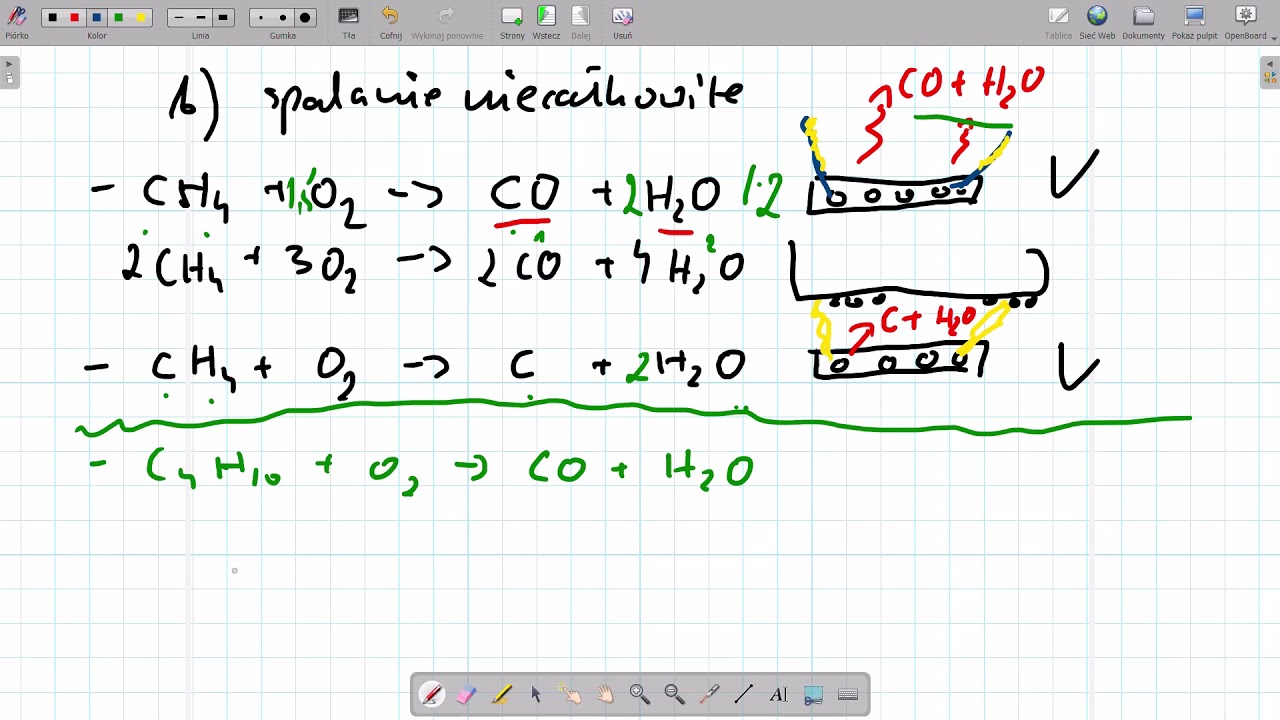 Piórko
Kolor
Linia
Gumka
Tła
Cofnij
Wykonaj ponownie
Strony
Wstecz
Dalej
Usuń
Tablica
Sieć Web
Dokumenty
Pokaż pulpit
OpenBoard
b) spalanie niecałkowite
CO + H₂O
- CH₄ + 1,5 O₂ -> CO + 2H₂O /·2
1 2
2CH₄ + 3O₂ -> 2CO + 4H₂O
C + H₂O
- CH₄ + O₂ -> C + 2H₂O
- C₄H₁₀ + O₂ -> CO + H₂O
AI